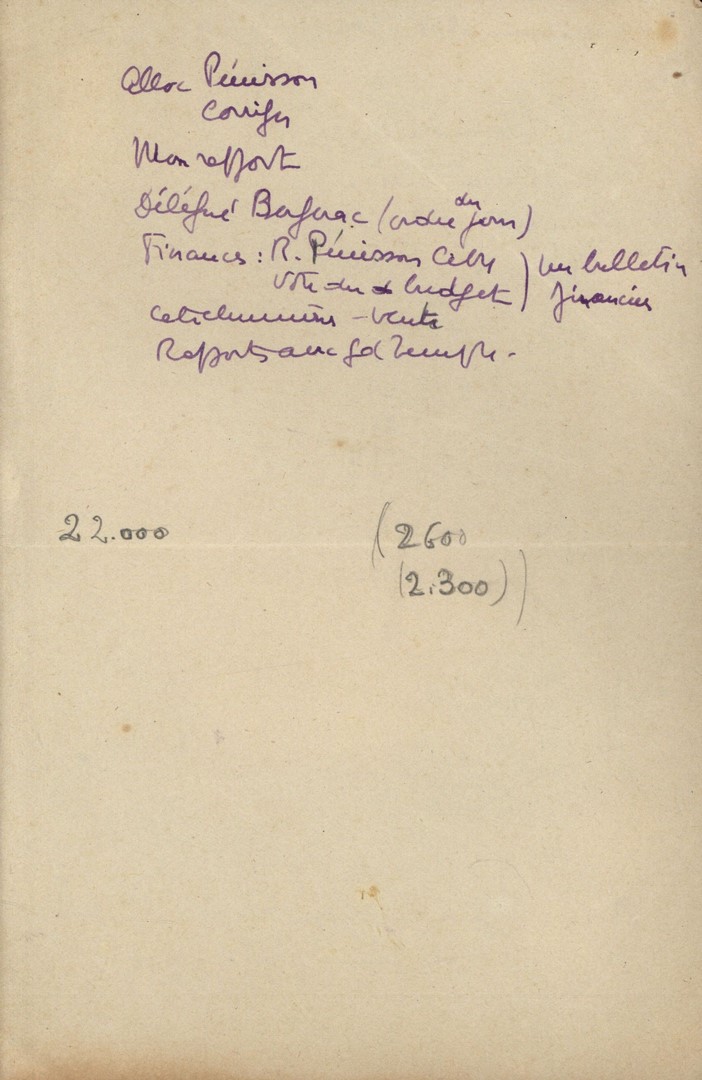 Alloc Pénisson
Corriger
Mon rapport
Délégué Bergerac (ordre du jour)
Finances : R. Pénisson
Vote du budget
un bulletin
financier
catéchumènes - vente
Rapports avec gd Temple.
22.000
(2600
(2.300))